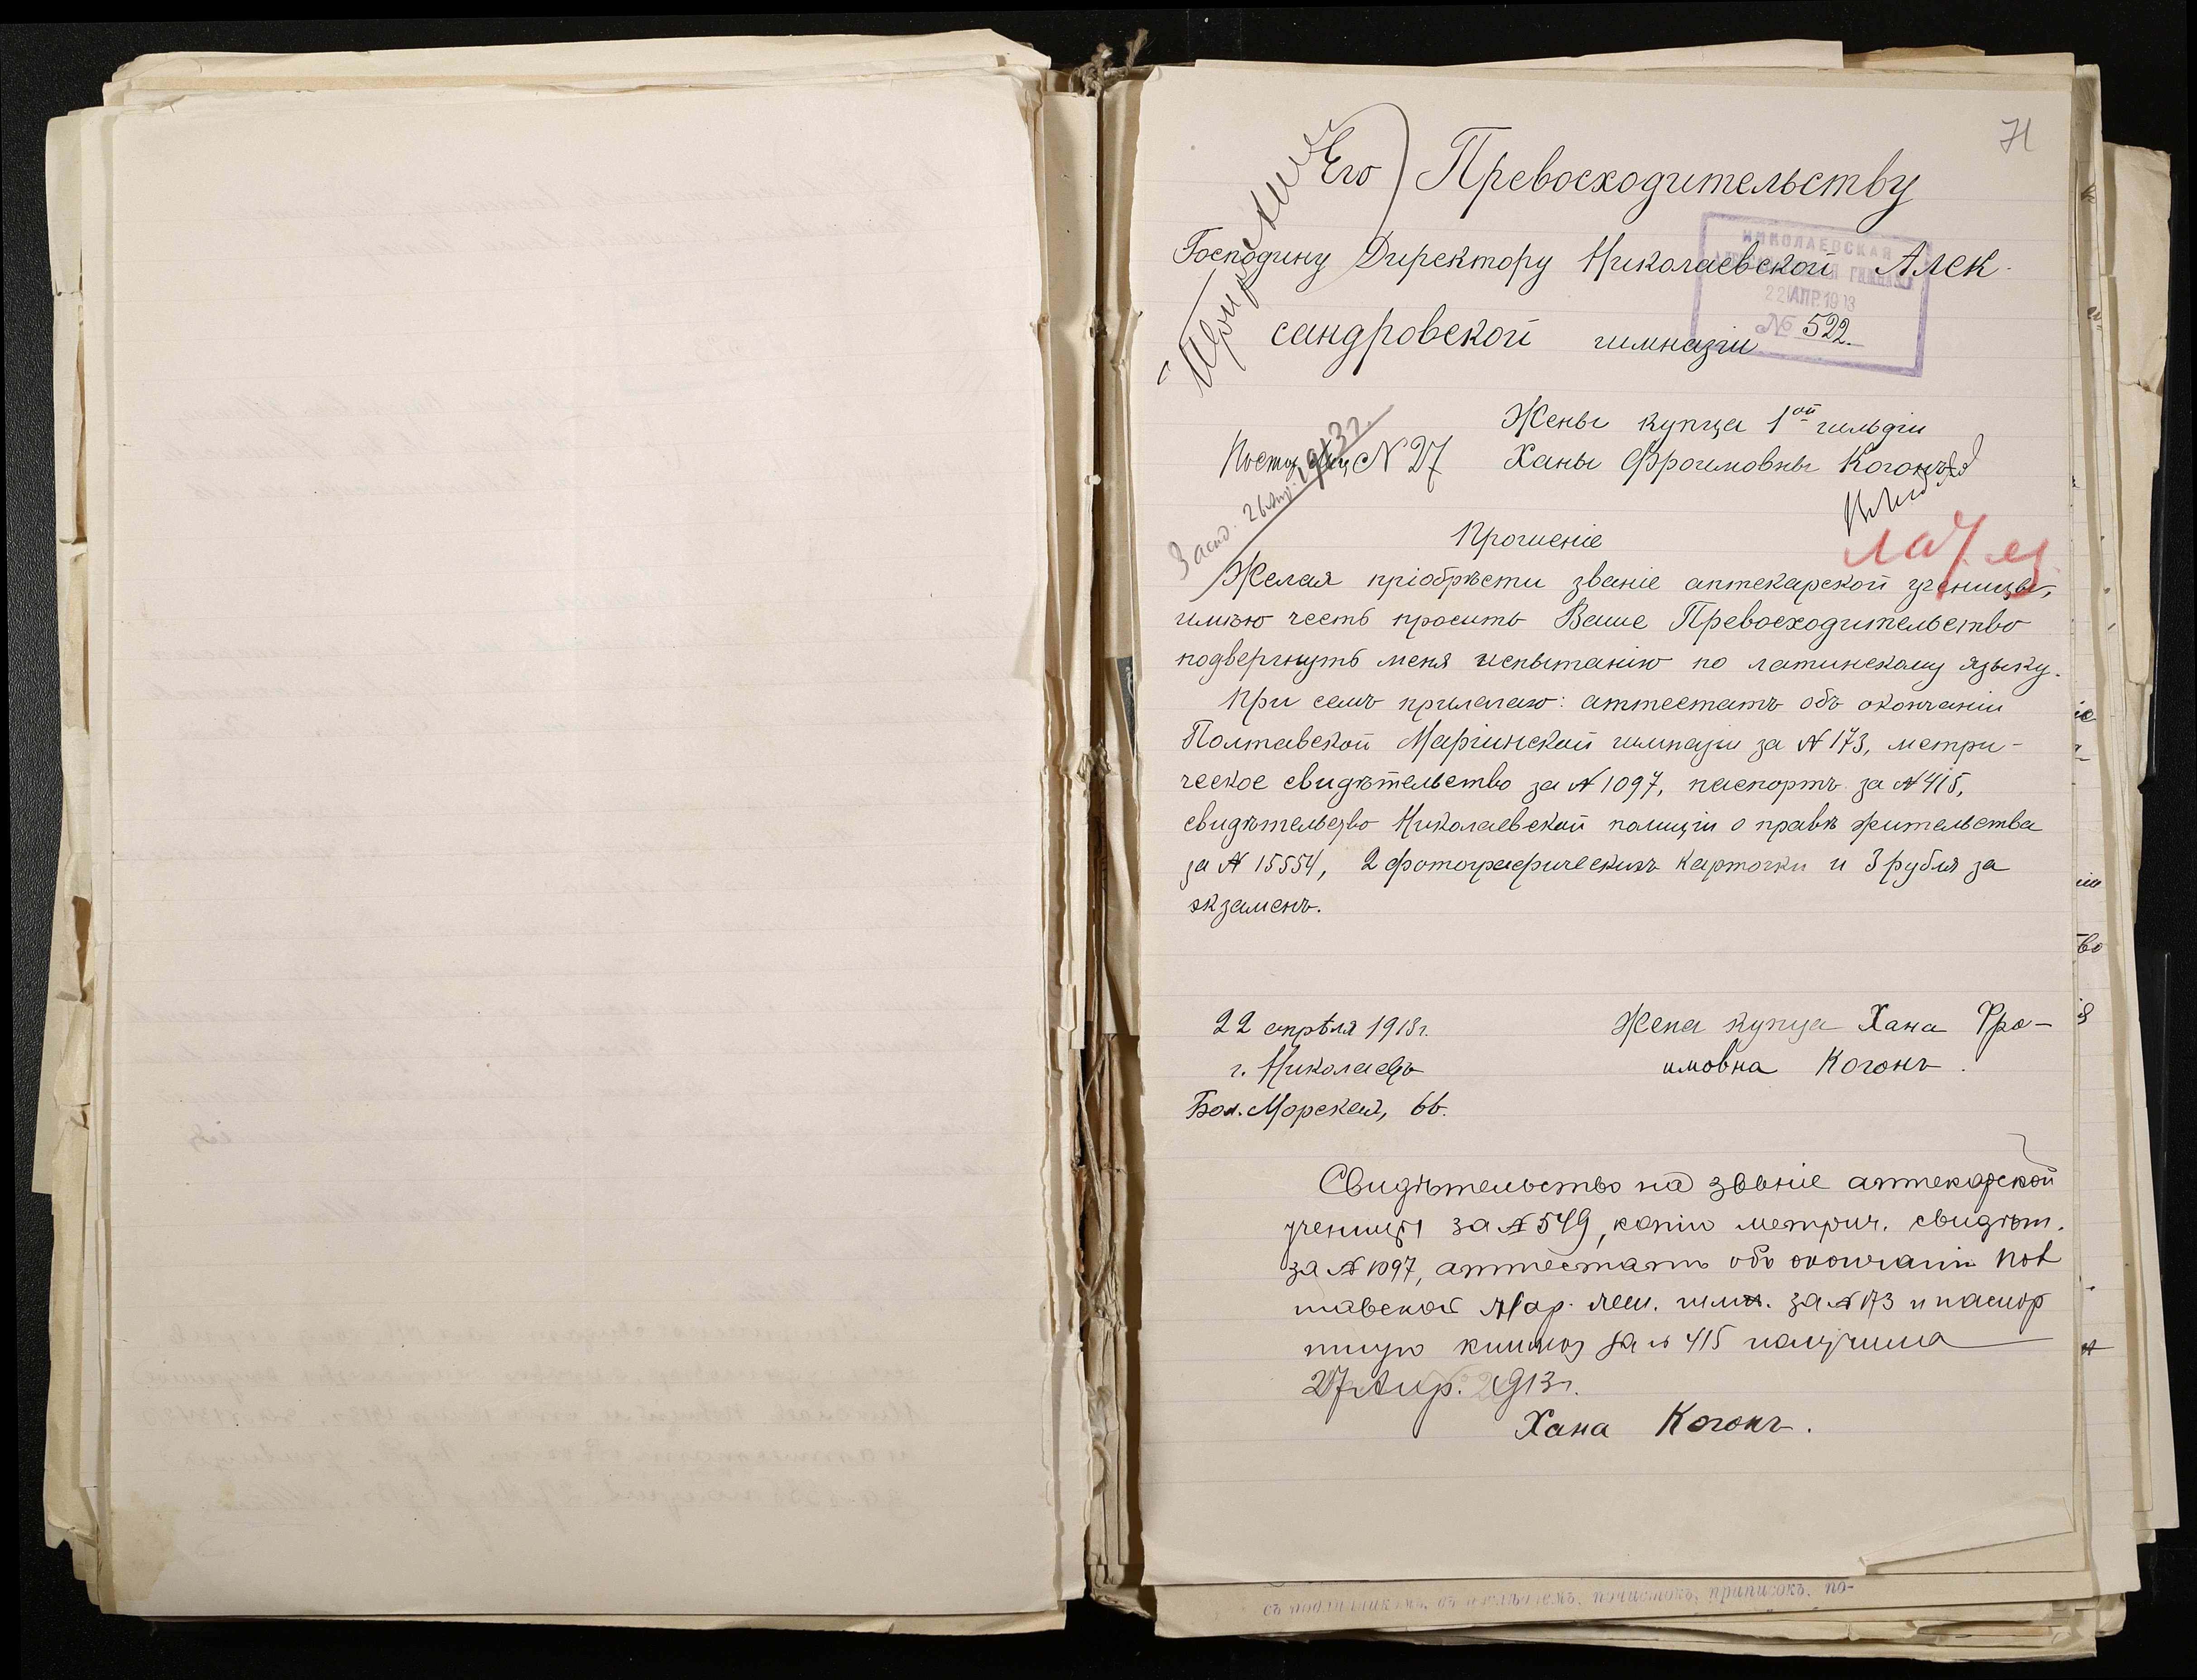 71
Его Превосходительству
Господину Директору Николаевской Алек-
сандровской гимназіи
НИКОЛАЕВСКАЯ
ГИМНАЗІЯ
22 АПР. 1913
№ 522.
Жены купца 1ой гильдіи
Ханы Фроимовны Когонъ
№ 27
26 Апр. 1913 г.
Прошеніе
Желая пріобрѣсти званіе аптекарской ученицы,
имѣю честь просить Ваше Превосходительство
подвергнуть меня испытанію по латинскому языку.
При семъ прилагаю: аттестатъ объ окончаніи
Полтавской Маріинской гимназіи за № 173, метри-
ческое свидѣтельство за № 1097, паспортъ за № 415,
свидѣтельство Николаевской полиціи о правѣ жительства
за № 15554, 2 фотографическихъ карточки и 3 рубля за
экзаменъ.
22 апрѣля 1913 г.
г. Николаевъ
Бол. Морская, 66.
Жена купца Хана Фро-
имовна Когонъ.
Свидѣтельство на званіе аптекарской
ученицы за № 549, копію метрич. свидѣт.
за № 1097, аттестатъ объ окончаніи Пол
тавской Мар. жен. гимн. за № 173 и паспор
тную книжку за № 415 получила
27 Апр. 1913 г.
Хана Когонъ.
приписокъ, по-